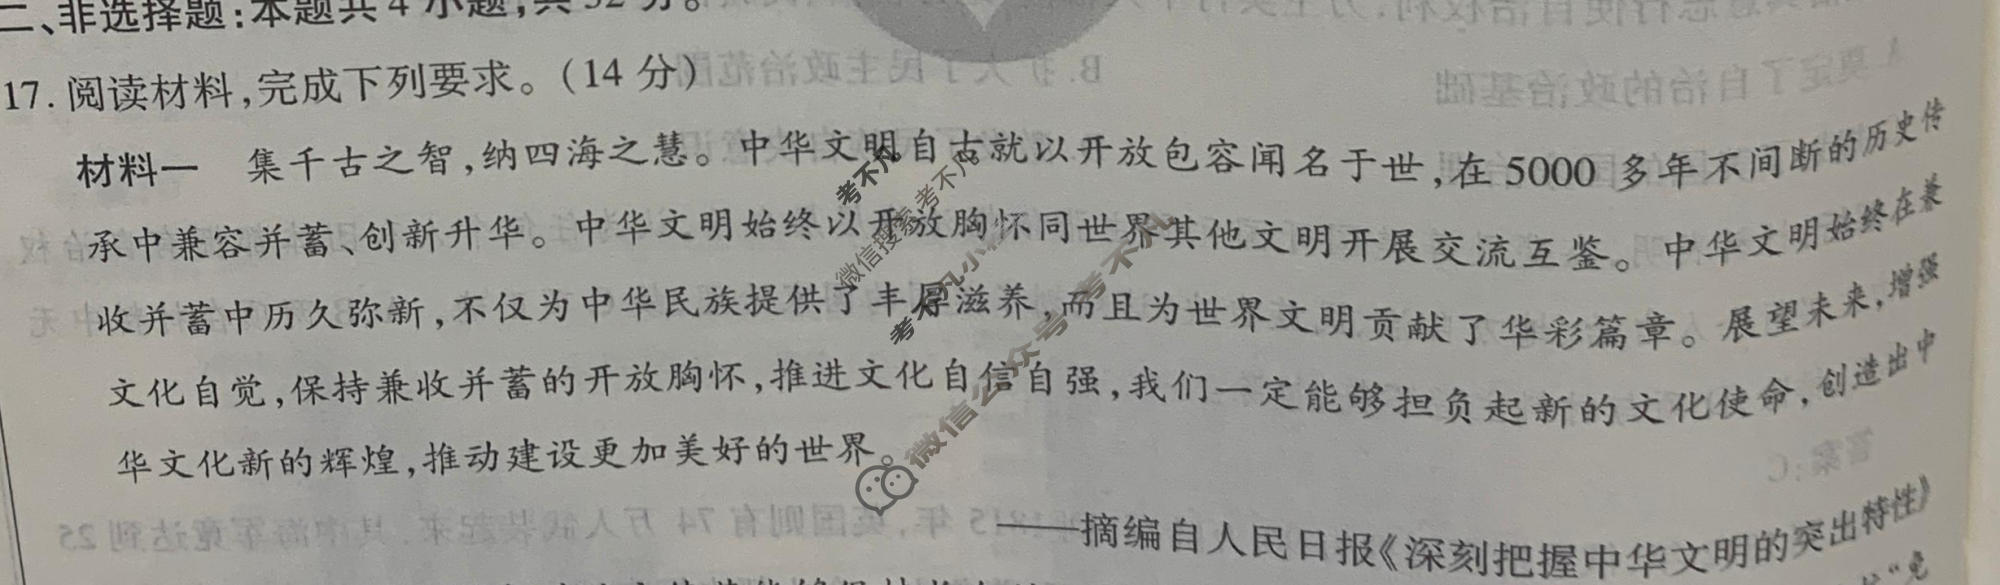 二、非选择题:本题共4小题,共52分。
17. 阅读材料,完成下列要求。(14 分)
材料一 集千古之智,纳四海之慧。中华文明自古就以开放包容闻名于世,在 5000 多年不间断的历史传
承中兼容并蓄、创新升华。中华文明始终以开放胸怀同世界其他文明开展交流互鉴。中华文明始终在兼
收并蓄中历久弥新,不仅为中华民族提供了丰厚滋养,而且为世界文明贡献了华彩篇章。展望未来,增强
文化自觉,保持兼收并蓄的开放胸怀,推进文化自信自强,我们一定能够担负起新的文化使命,创造出中
华文化新的辉煌,推动建设更加美好的世界。
——摘编自人民日报《深刻把握中华文明的突出特性》
考不凡
微信搜索考不凡
考不凡小
微信公众号 考不凡